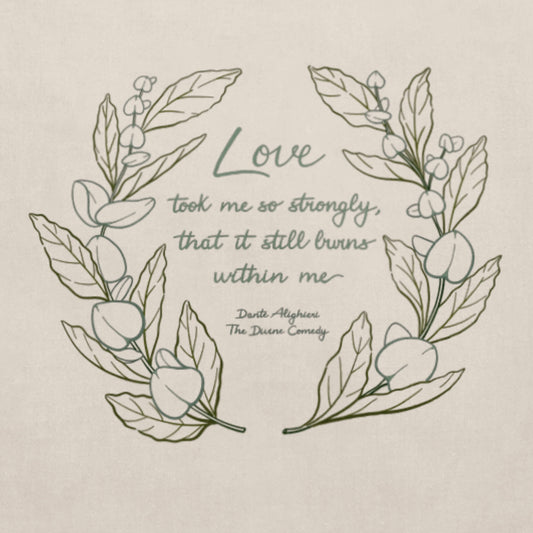 Love
took me so strongly,
that it still burns
within me
Dante Alighieri
The Divine Comedy